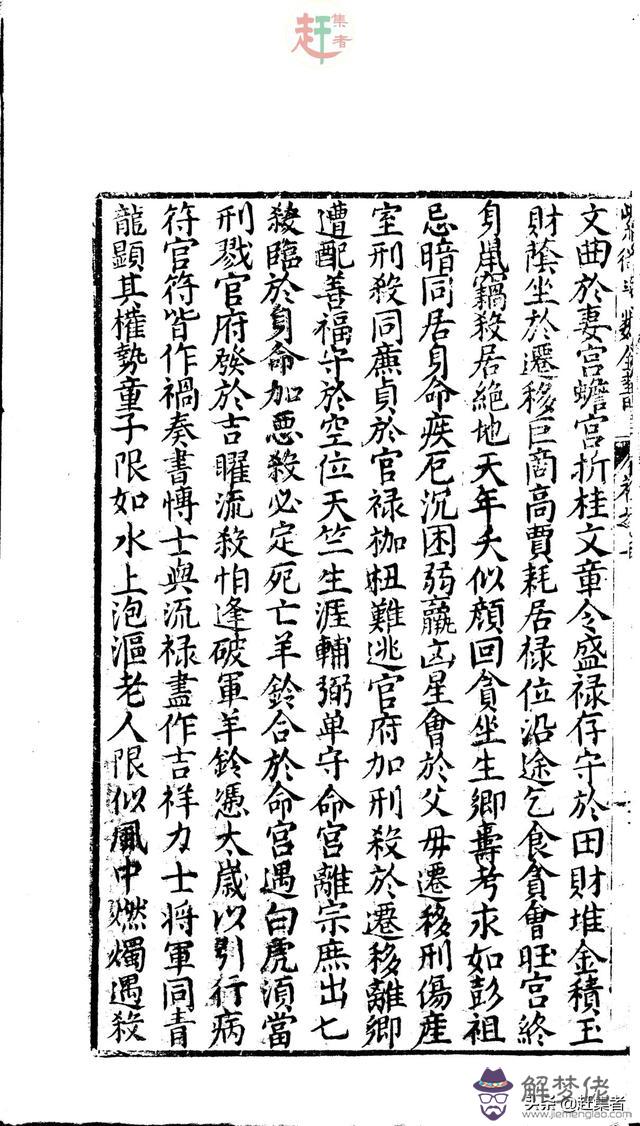 赶集者
文曲於妻宮蟾宮折桂文章令盛禄存守於田財堆金積玉
財蔭坐於遷移巨商高賈耗居禄位沿途乞食貪會旺宮終
身鼠竊殺居絶地天年夭似顔回貪坐生卿壽考求如彭祖
忌暗同居身命疾厄沉困弱羸㐫星會於父母遷移刑傷産
室刑殺同廉貞於官禄枷杻難逃官府加刑殺於遷移離卿
遭配善福守於空位天竺生涯輔弼单守命宮離宗庶出七
殺臨於身命加惡殺必定死亡羊鈴合於命宮遇白虎須當
刑戮官府發於吉曜流殺怕逢破軍羊鈴憑太歲以引行病
符官符皆作禍奏書慱士與流禄盡作吉祥力士将軍同青
龍顯其權勢童子限如水上泡漚老人限似風中燃燭遇殺
解梦佬
头条 @赶集者
www.jiemenglao.com